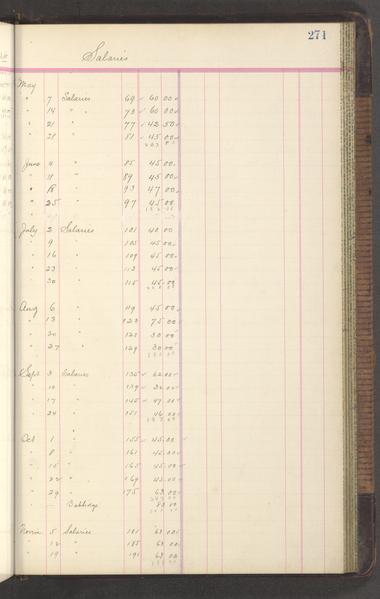 271
Salaries
May
" 7 Salaries 69 60 00
" 14 " 73 60 00
" 21 " 77 42 50
" 28 " 81 45 00
June 4 " 85 45 00
" 11 " 89 45 00
" 18 " 93 47 00
" 25 " 97 45 00
July 2 Salaries 101 40 00
" 9 " 105 45 00
" 16 " 109 45 00
" 23 " 112 45 00
" 30 " 115 45 00
Aug 6 " 119 45 00
" 13 " 123 75 00
" 20 " 30 00
" 27 " 129 30 00
Sept 3 Salaries 135 62 00
" 10 " 139 32 00
" 17 " 145 47 00
" 24 " 151 46 00
Oct 1 " 155 45 00
" 8 " 161 45 00
" 15 " 165 45 00
" 22 " 169 45 00
" 29 " 175 63 00
Novem 5 Salaries 181 63 00
" 12 " 185 63 00
" 19 " 191 63 00